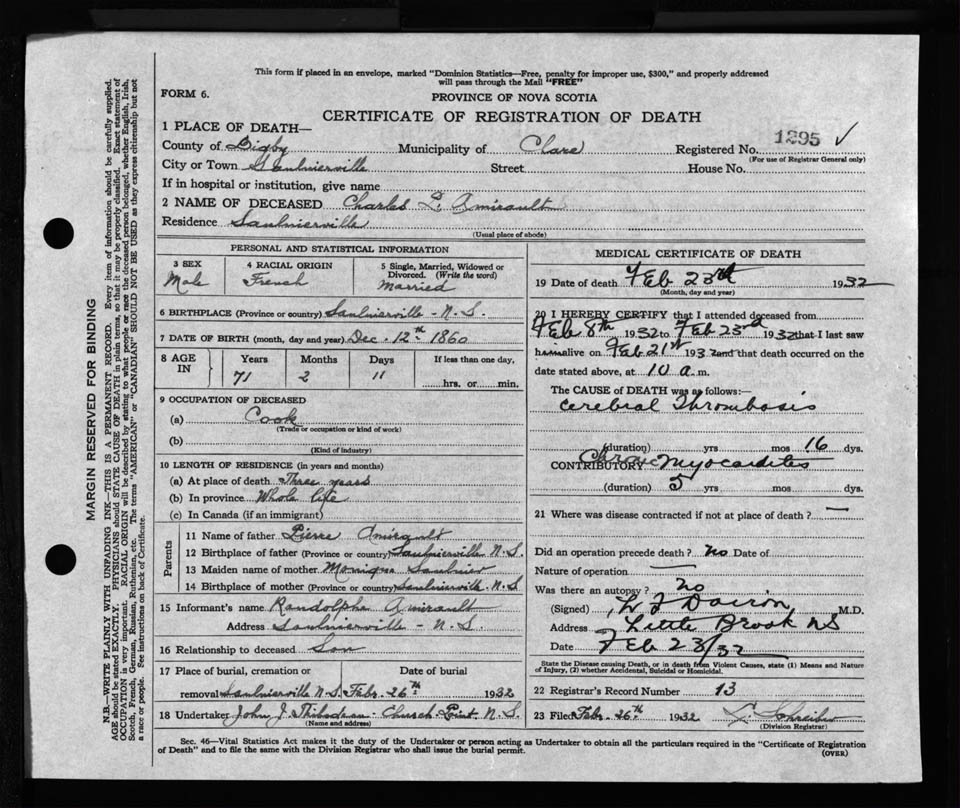 This form if placed in an envelope, marked "Dominion Statistics—Free, penalty for improper use, $300," and properly addressed
will pass through the Mail "FREE"
FORM 6.
PROVINCE OF NOVA SCOTIA
CERTIFICATE OF REGISTRATION OF DEATH
1 PLACE OF DEATH—
1295 ✓
County of Digby Municipality of Clare Registered No.
(For use of Registrar General only)
City or Town Saulnierville Street House No.
If in hospital or institution, give name
2 NAME OF DECEASED Charles L. Amirault
Residence Saulnierville
(Usual place of abode)
PERSONAL AND STATISTICAL INFORMATION
3 SEX 4 RACIAL ORIGIN 5 Single, Married, Widowed or
Divorced. (Write the word)
Male French Married
6 BIRTHPLACE (Province or country) Saulnierville - N.S.
7 DATE OF BIRTH (month, day and year) Dec. 12th 1860
8 AGE IN Years Months Days If less than one day,
71 2 11 hrs. or min.
9 OCCUPATION OF DECEASED
(a) Cook
(Trade or occupation or kind of work)
(b)
(Kind of industry)
10 LENGTH OF RESIDENCE (in years and months)
(a) At place of death Three years
(b) In province Whole life
(c) In Canada (if an immigrant)
Parents
11 Name of father Pierre Amirault
12 Birthplace of father (Province or country) Saulnierville N.S.
13 Maiden name of mother Monique Saulnier
14 Birthplace of mother (Province or country) Saulnierville N.S
15 Informant's name Randolphe Amirault
Address Saulnierville - N.S.
16 Relationship to deceased Son
17 Place of burial, cremation or Date of burial
removal Saulnierville N.S. Febr. 26th 1932
18 Undertaker John J. Thibodeau - Church Point N.S.
(Name and address)
MEDICAL CERTIFICATE OF DEATH
19 Date of death Feb 23rd 1932
(Month, day and year)
20 I HEREBY CERTIFY that I attended deceased from
Feb 8th 1932 to Feb 23rd 1932 that I last saw
him alive on Feb 21st 1932 and that death occurred on the
date stated above, at 10 a.m.
The CAUSE OF DEATH was as follows:—
Cerebral Thrombosis
(duration) yrs mos 16 dys.
CONTRIBUTORY Chronic Myocarditis
(duration) 5 yrs mos dys.
21 Where was disease contracted if not at place of death? —
Did an operation precede death? No Date of
Nature of operation —
Was there an autopsy? No
(Signed) M.D.
Address Little Brook NS
Date Feb 23/32
State the Disease causing Death, or in death from Violent Causes, state (1) Means and Nature
of Injury, (2) whether Accidental, Suicidal or Homicidal.
22 Registrar's Record Number 13
23 Filed Febr. 26th 1932
(Division Registrar)
Sec. 46—Vital Statistics Act makes it the duty of the Undertaker or person acting as Undertaker to obtain all the particulars required in the "Certificate of Registration
of Death" and to file the same with the Division Registrar who shall issue the burial permit.
(OVER)
MARGIN RESERVED FOR BINDING
N.B.—WRITE PLAINLY WITH UNFADING INK—THIS IS A PERMANENT RECORD. Every item of information should be carefully supplied.
AGE should be stated EXACTLY. PHYSICIANS should STATE CAUSE OF DEATH in plain terms, so that it may be properly classified. Exact statement of
OCCUPATION is very important. RACIAL ORIGIN will be described by stating to what people or race the deceased person belonged, whether English, Irish,
Scotch, French, German, Russian, Ruthenian, etc. The terms "AMERICAN" or "CANADIAN" SHOULD NOT BE USED as they express citizenship but not
a race or people. See instructions on back of Certificate.